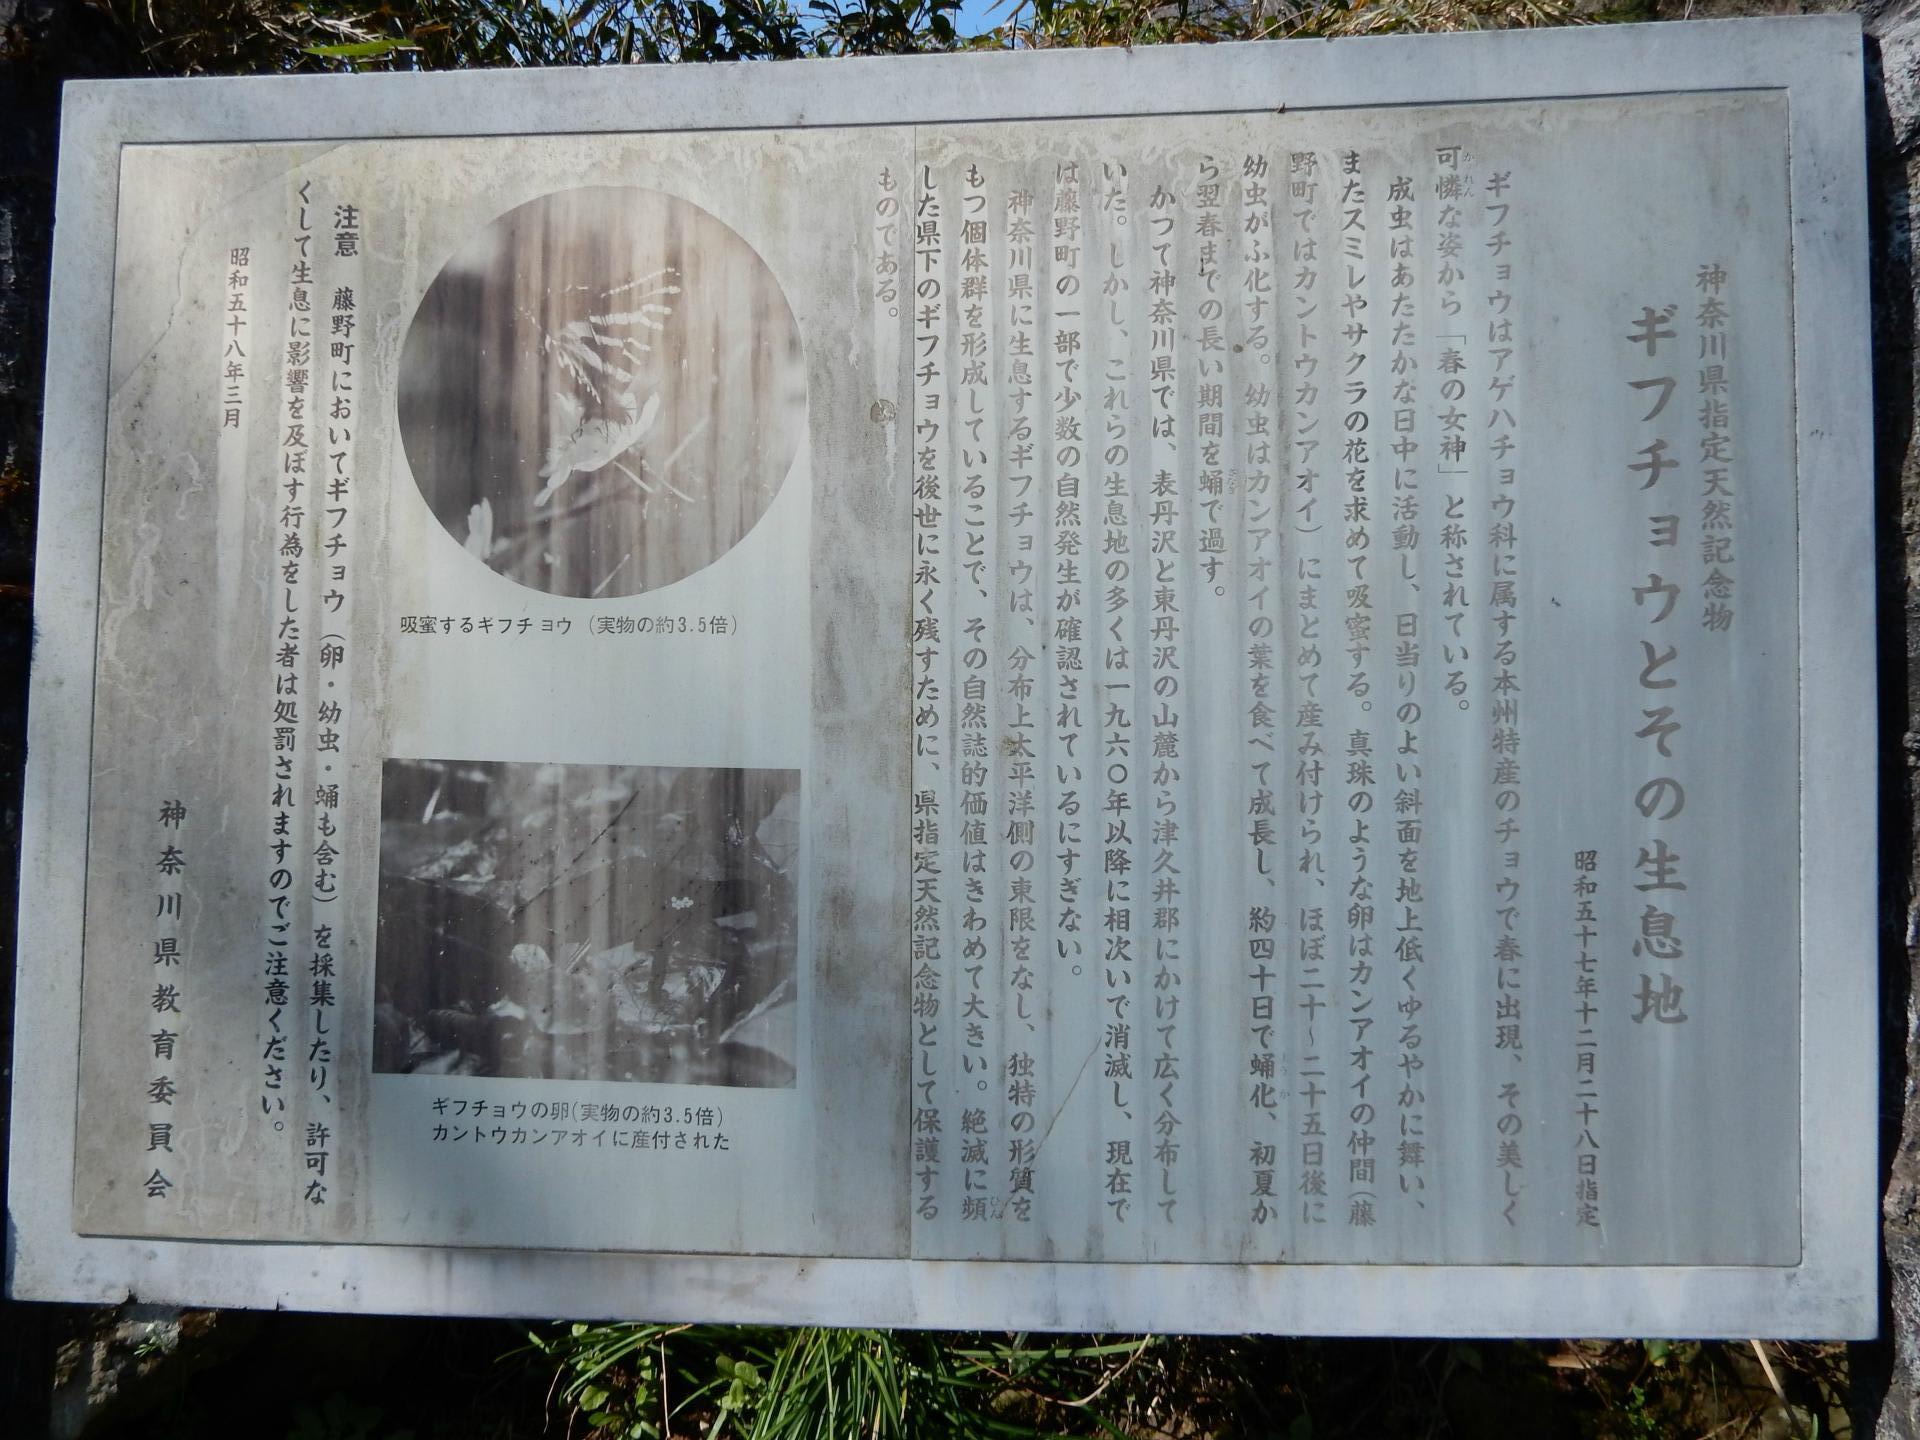 神奈川県指定天然記念物
ギフチョウとその生息地
昭和五十七年十二月二十八日指定
ギフチョウはアゲハチョウ科に属する本州特産のチョウで春に出現、その美しく
可憐な姿から「春の女神」と称されている。
成虫はあたたかな日中に活動し、日当りのよい斜面を地上低くゆるやかに舞い、
またスミレやサクラの花を求めて吸蜜する。真珠のような卵はカンアオイの仲間(藤
野町ではカントウカンアオイ)にまとめて産み付けられ、ほぼ二十~二十五日後に
幼虫がふ化する。幼虫はカンアオイの葉を食べて成長し、約四十日で蛹化、初夏か
ら翌春までの長い期間を蛹で過す。
かつて神奈川県では、表丹沢と東丹沢の山麓から津久井郡にかけて広く分布して
いた。しかし、これらの生息地の多くは一九六〇年以降に相次いで消滅し、現在で
は藤野町の一部で少数の自然発生が確認されているにすぎない。
神奈川県に生息するギフチョウは、分布上太平洋側の東限をなし、独特の形質を
もつ個体群を形成していることで、その自然誌的価値はきわめて大きい。絶滅に頻
した県下のギフチョウを後世に永く残すために、県指定天然記念物として保護する
ものである。
吸蜜するギフチョウ(実物の約3.5倍)
ギフチョウの卵(実物の約3.5倍)
カントウカンアオイに産付された
注意 藤野町においてギフチョウ(卵・幼虫・蛹も含む)を採集したり、許可な
くして生息に影響を及ぼす行為をした者は処罰されますのでご注意ください。
昭和五十八年三月
神奈川県教育委員会